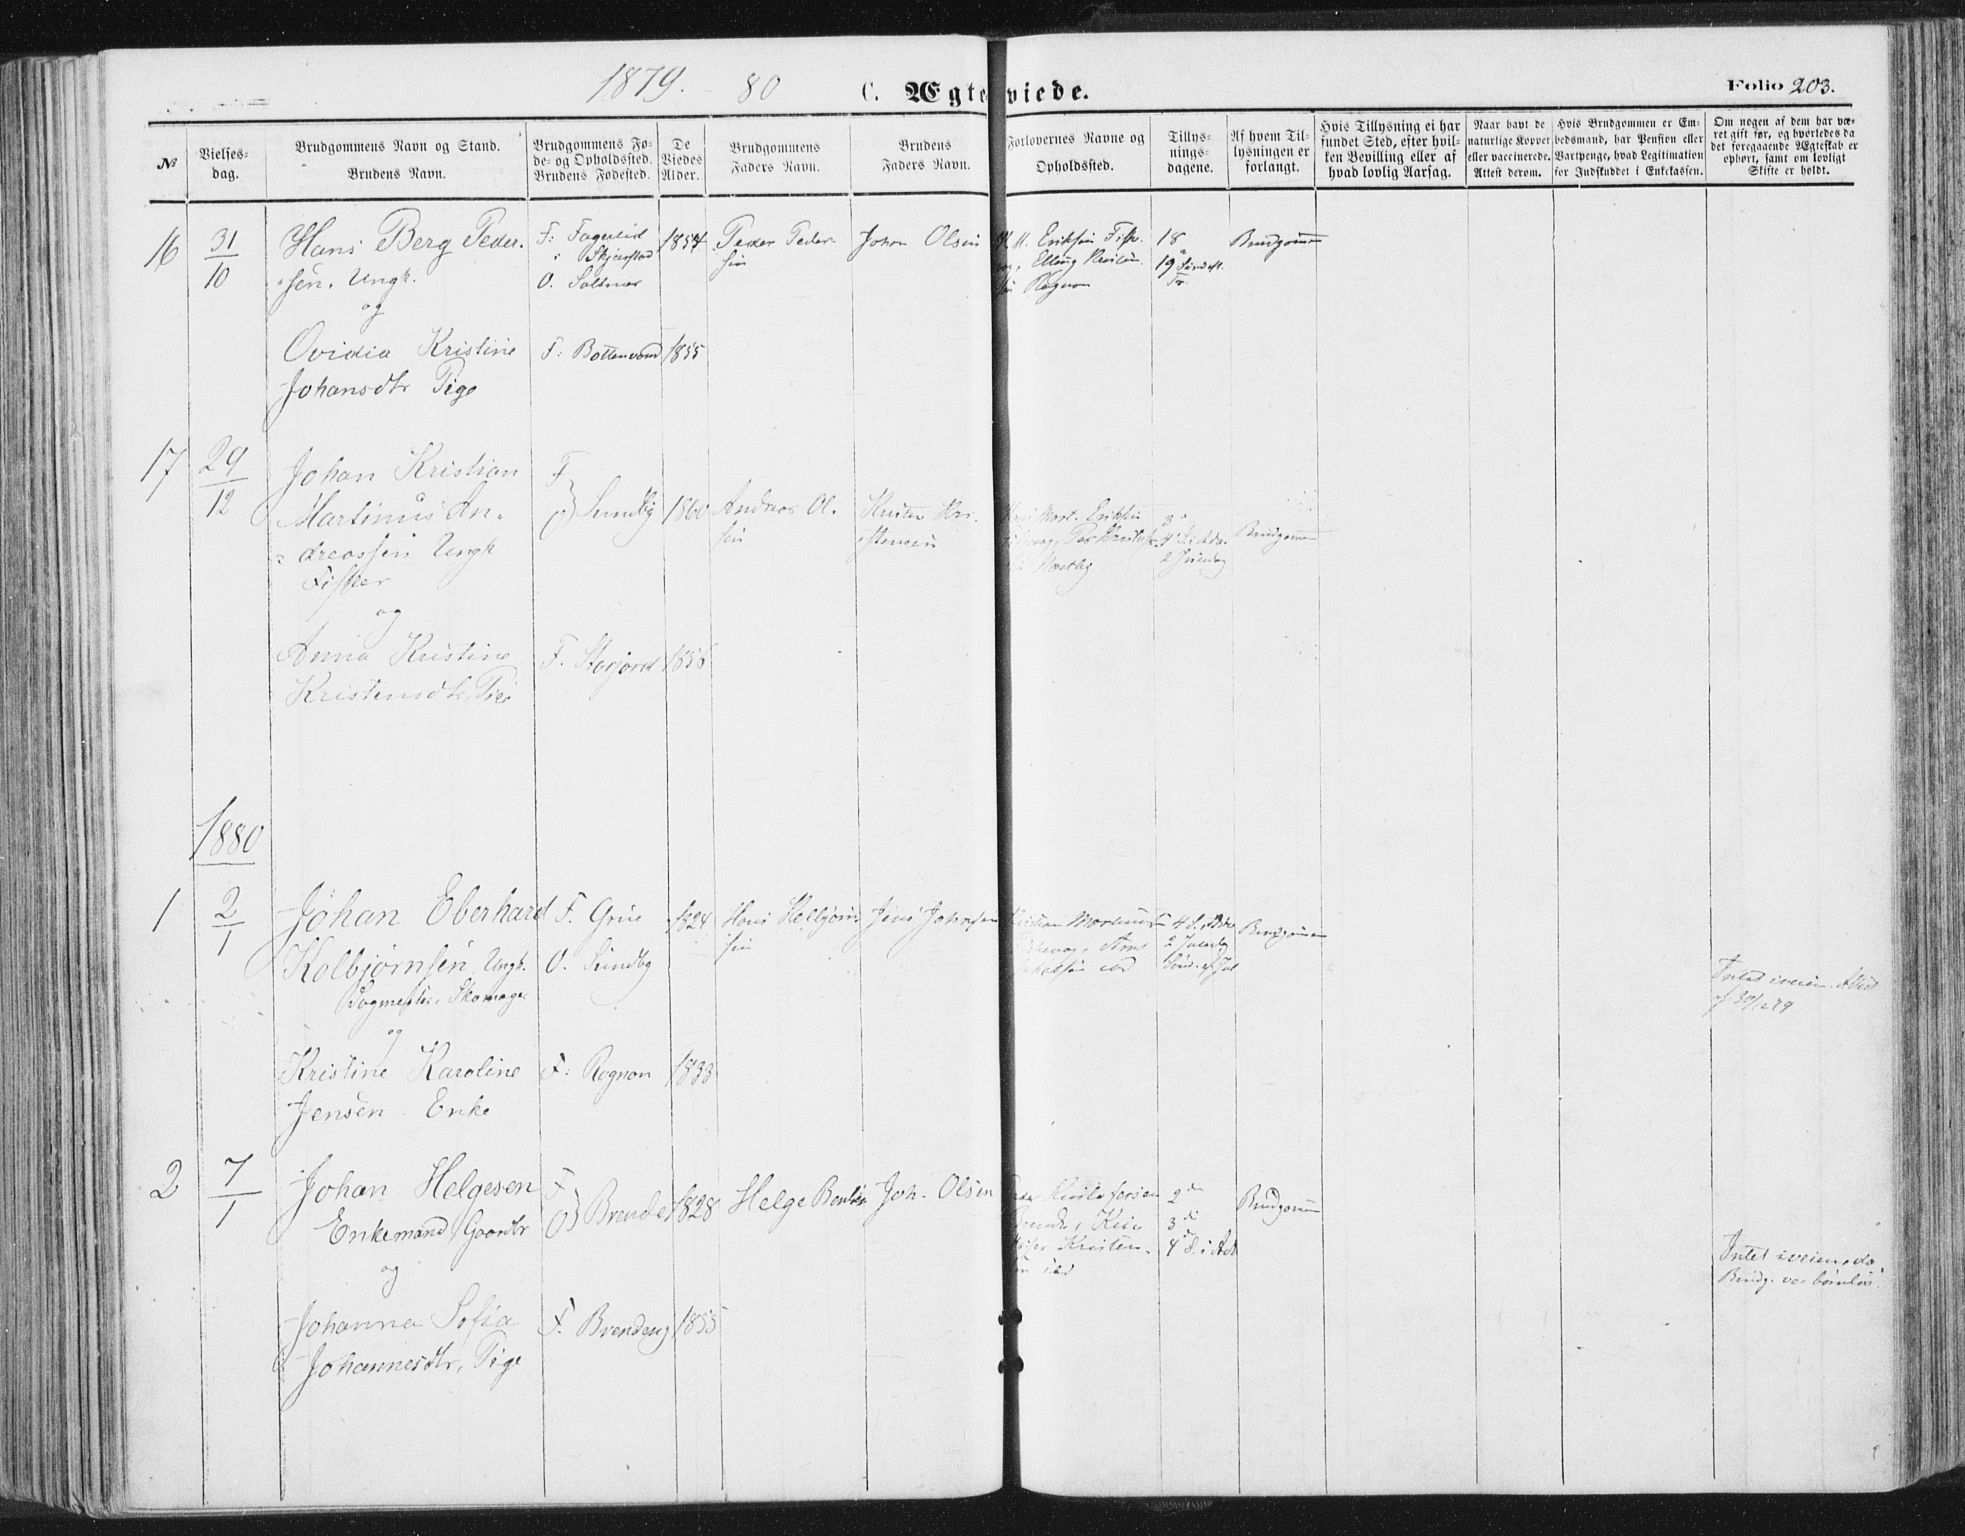 1879. 80 C. Ægteviede. Folio 203.
№
Vielses-
dag.
Brudgommens Navn og Stand.
Brudens Navn.
Brudgommens Fø-
de- og Opholdssted.
Brudens Fødested.
De
Viedes
Alder.
Brudgommens
Faders Navn.
Brudens
Faders Navn.
Forlovernes Navne og
Opholdssted.
Tillys-
nings-
dagene.
Af hvem Til-
lysningen er
forlangt.
Hvis Tillysning ei har
fundet Sted, efter hvil-
ken Bevilling eller af
hvad lovlig Aarsag.
Naar havt de
naturlige Kopper
eller vaccinerede.
Attest derom.
Hvis Brudgommen er Em-
bedsmand, har Pension eller
Vartpenge, hvad Legitimation
for Indskuddet i Enkekassen.
Om nogen af dem har væ-
ret gift før, og hvorledes da
det foregaaende Ægteskab er
ophørt, samt om lovligt
Skifte er holdt.
16 31/10 Hans Berg Peder-
sen, Ungk.
og
Ovidia Kristine
Johansdtr Pige
F: Fagerlid
i Skjerstad
O. Saltnes
F: Bottenvand
1854
1855
Peder Peder-
sen
Johan Olsen
M. Eriksen
Elling
Rognan
18
19
Tr.
Brudgommen
17 29/12 Johan Kristian
Martinus An-
dreassen Ungk
Fisker
og
Anna Kristine
Kristensdtr Pige
F
O) Sundby
F. Storjord
1860
1856
Andreas Ol-
sen
Kristen Kri-
stensen
Mort. Eriksen
2 Juledag
Brudgommen
1880
1 2/1 Johan Eberhard
Kolbjørnsen Ungk.
Skomager
og
Kristine Karoline
Jensen Enke
F. Grue
O. Sundby
F: Rognan
1824
1833
Hans Kolbjørn-
sen
Jens Johnsen
Kristian
4 S. i Adv.
2 Juledag
Sønd. ef Jul
Brudgommen
Intet iveien. Attest
af 30/12 79
2 7/1 Johan Helgesen
Enkemand Gaardbr
og
Johanna Sofia
Johannesdtr, Pige
F
O) Brende
F. Brendeng
1828
1855
Helge
Joh. Olsen
Peder Kristofersen
Kristen-
sen ibd
2
3
4 S. i Adv
Brudgommen
Intet iveien, da
Brudg. var barnløs.